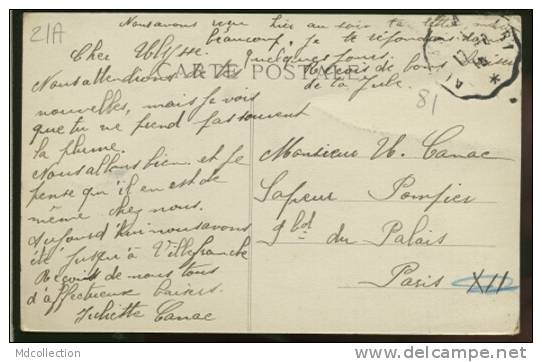 21A
Nous avons reçu hier au soir ta lettre
beaucoup, je te répondrai dans
quelques jours
Reçois de bons baisers
de la Julie.
CARTE POSTALE
81
Cher Ulysse
Nous attendions de tes
nouvelles, mais je vois
que tu ne prend pas souvent
la plume.
Nous allons bien et je
pense qu'il en est de
même chez vous.
Aujourd'hui nous avons
été jusqu'à Villefranche
Reçois de nous tous
d'affectueux baisers.
Juliette Canac
Monsieur U. Canac
Sapeur Pompier
9 bd du Palais
Paris XII
MdCollection
www.delcampe.net